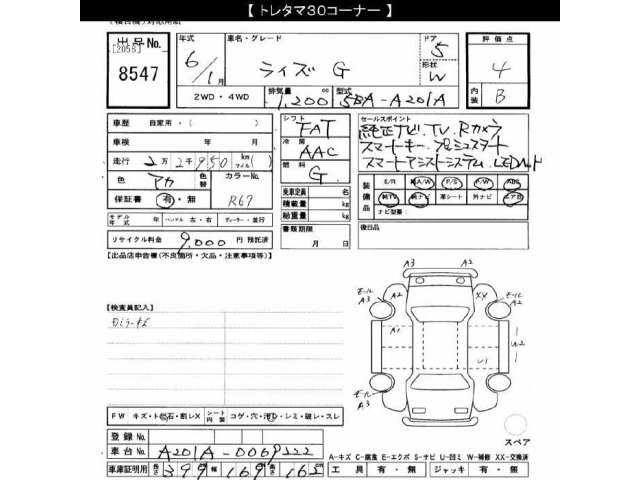 【 トレタマ30コーナー 】
出品No.
[2056]
8547
年式
6/1月
車名・グレード
ライズ G
ドア
5
形状
W
評価点
4
内装
B
2WD・4WD
排気量
1,200 cc
型式
5BA-A201A
車歴 自家用・( )
車検 年 月
走行 2万2千950 km マイル ( )
色 アカ 色替
カラーNo. R67
保証書 有・無
モデル年式 年 ハンドル 左・右 ディーラー・並行
リサイクル料金 9,000 円 預託済
シフト
FAT
冷房
AAC
燃料
G
乗車定員 名
積載量 kg
総重量 kg
書類期限
月 日
セールスポイント
純正ナビ.TV.Rカメラ
スマートキー.プッシュスタート
スマートアシストシステム.LEDヘッド
装備品
S/R 純A/W P/S P/W ABS
純TV 純ナビ 革シート 外ナビ エアB
ナビ型番:
後日品
【出品店申告欄(不良箇所・欠品・注意事項等)】
【検査員記入】
Rミラーキズ
A3 A2
モール A3 A2 XX モール A2
A1 W2
U1
モール A3 モール A2
スペア
FW キズ・ト・石・割レX シート内装 コゲ・穴・汚レ・シミ・破レ・スレ
登録No.
車台No. A201A-0069222
車庫証明用 長さ 399 幅 169 高さ 162 cm
A-キズ C-腐食 E-エクボ S-サビ U-凹ミ W-補修 XX-交換済
工具 有・無 ジャッキ 有・無